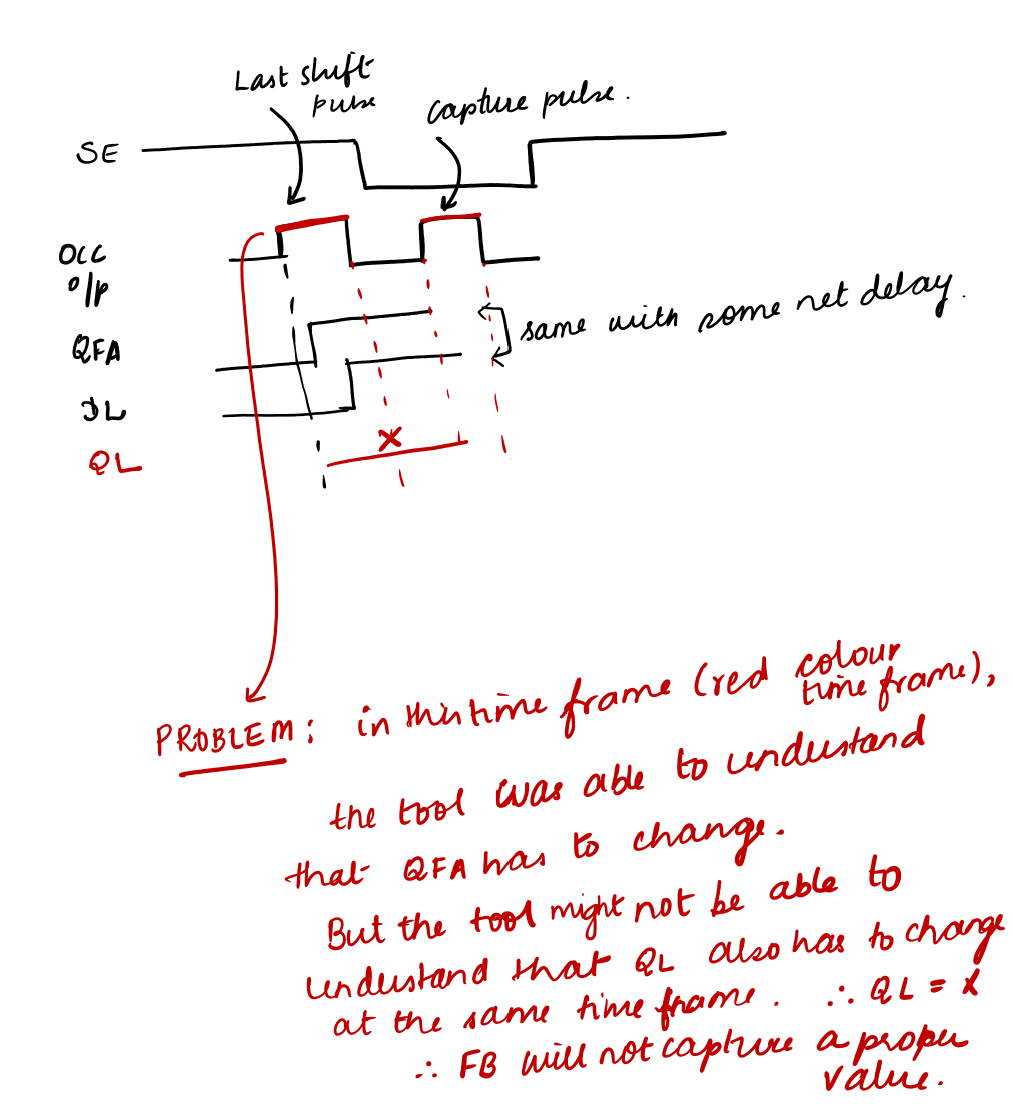 Last shift
pulse
capture pulse.
SE
OCC
O/P
QFA
same with some net delay.
DL
X
QL
PROBLEM: in this time frame (red colour
time frame),
the tool was able to understand
that QFA has to change.
But the tool might not be able to
understand that QL also has to change
at the same time frame. ∴ QL = X
∴ FB will not capture a proper
value.